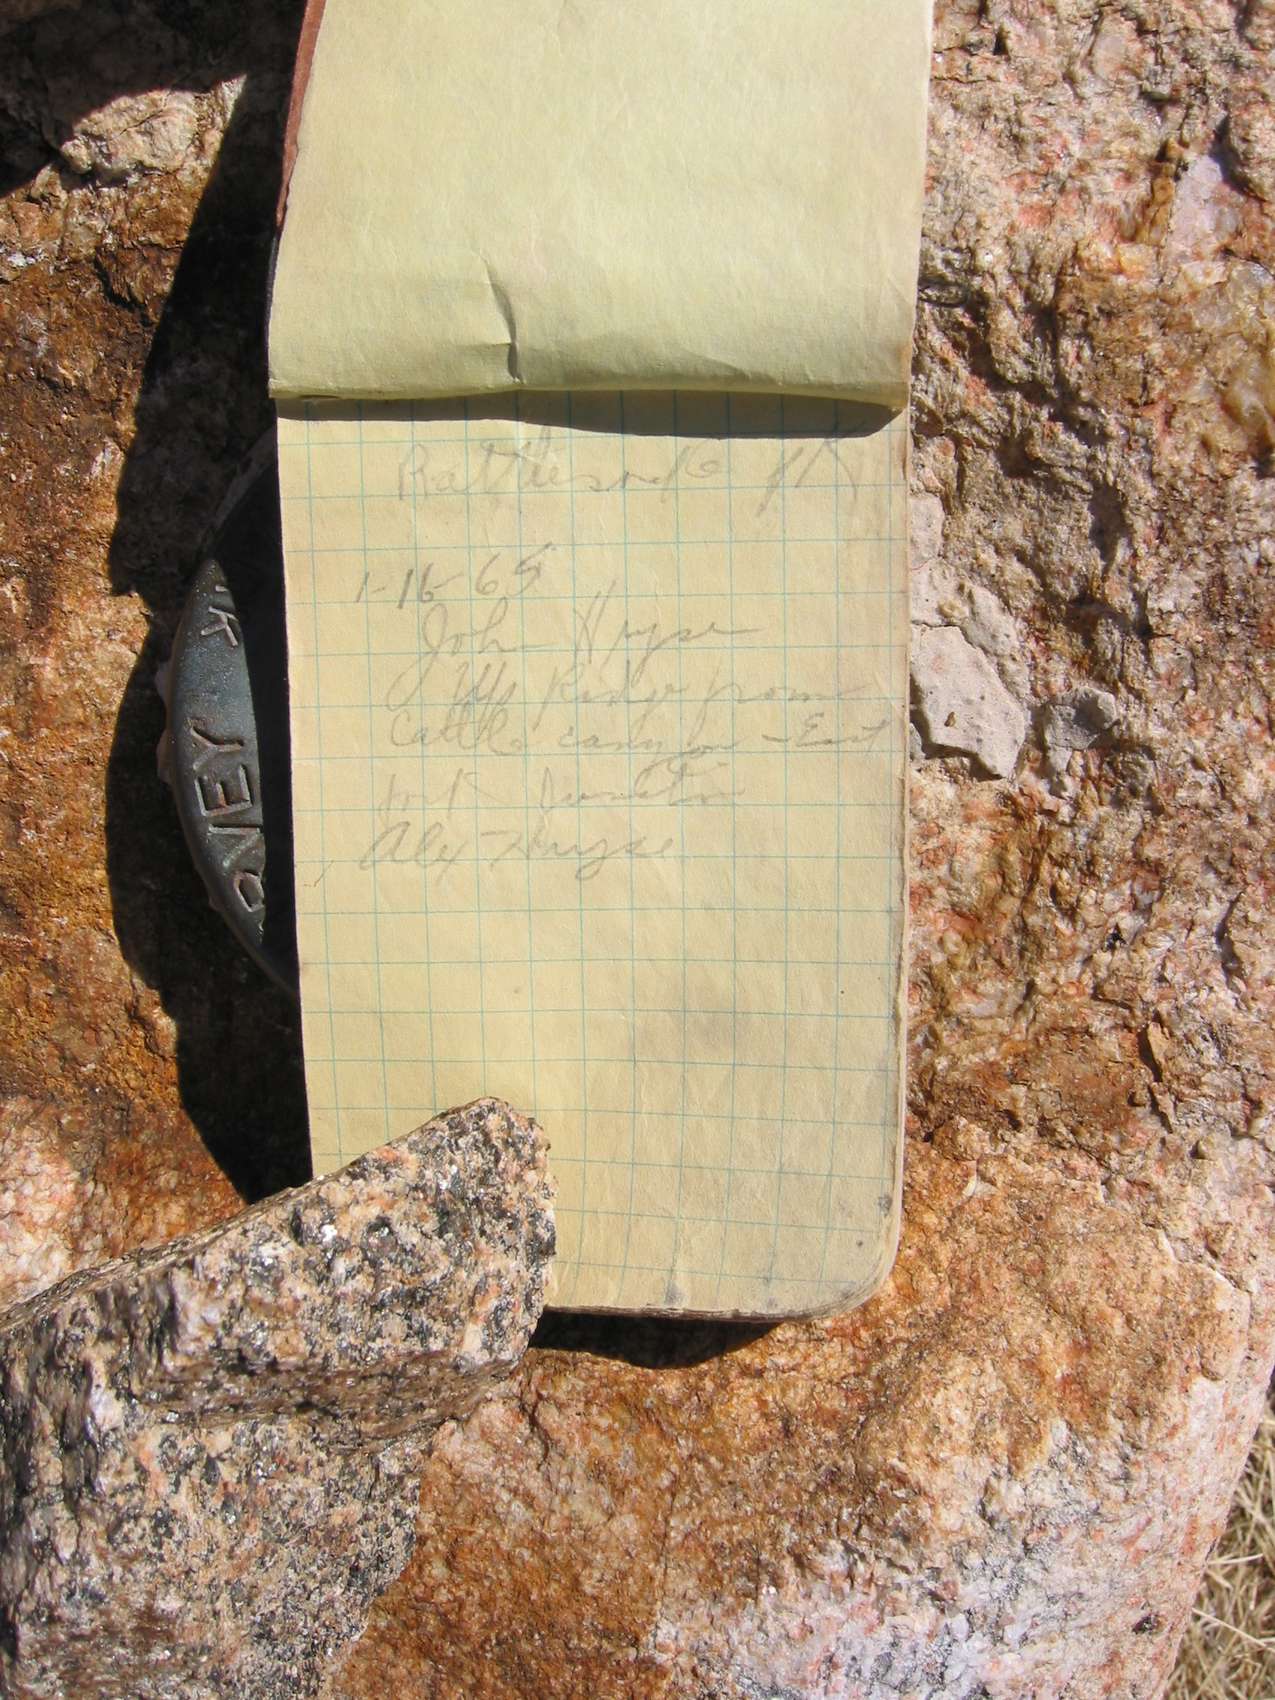 Rattlesnake pk
1-16-65
John
Up Ridge from
Cattle canyon - East
fork Junction
Alex
NEY